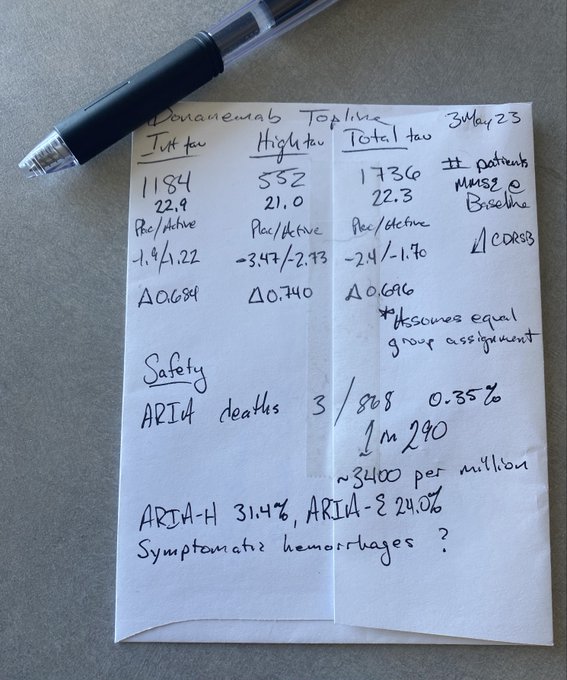 Donanemab Topline 3 May 23
Int tau High tau Total tau
1184 552 1736 # patients
22.9 21.0 22.3 MMSE @ Baseline
Plac/Active Plac/Active Plac/Active
-1.9/1.22 -3.47/-2.73 -2.4/-1.70 Δ CDRSB
Δ0.684 Δ0.740 Δ0.696
*Assumes equal
group assignment
Safety
ARIA deaths 3/868 0.35%
1 in 290
~3400 per million
ARIA-H 31.4%, ARIA-E 24.0%
Symptomatic hemorrhages ?